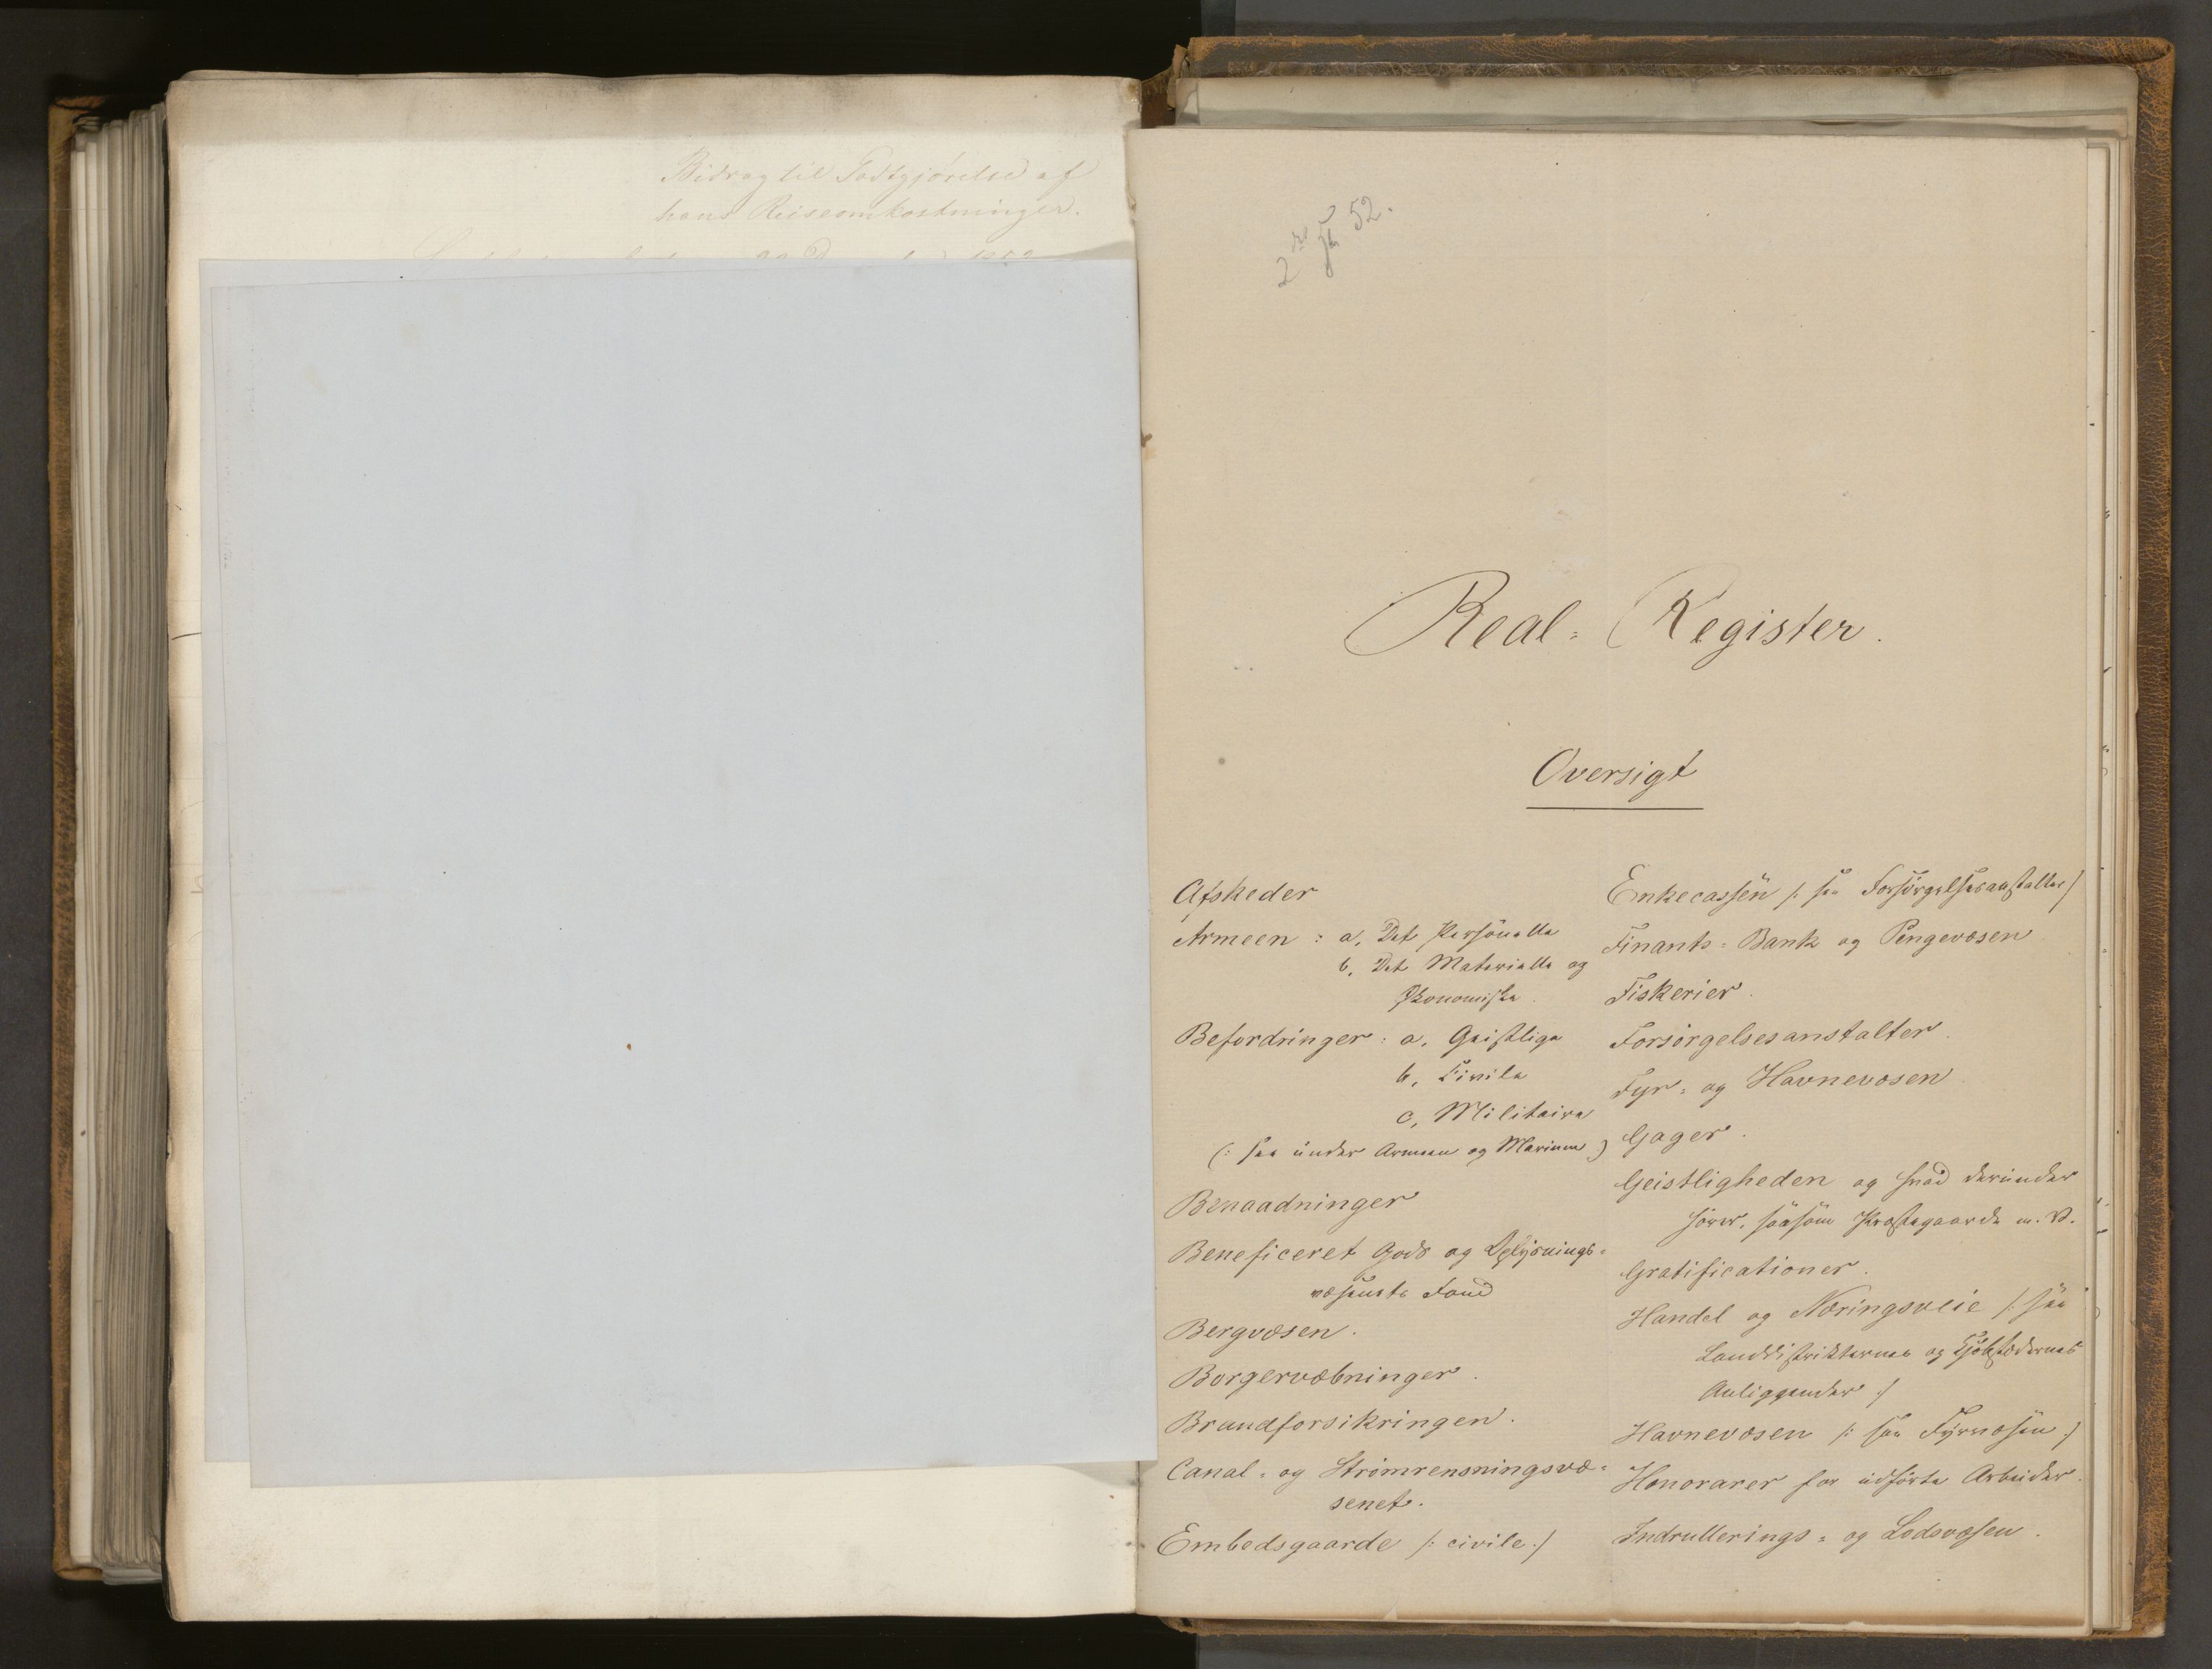 Bidrag til Godtgjørelse af
hans Reiseomkostninger.
2det 52.
Real-Register.
Oversigt
Afskeder
Armeen: a, Det Personelle
b, Det Materielle og
Økonomiske.
Befordringer: a. Geistlige
b, Civile
c, Militaire
(: see under Armeen og Marinen)
Benaadninger
Beneficeret Gods og Oplysnings-
væsenets Fond
Bergvæsen.
Borgervæbninger.
Brandforsikringen.
Canal- og Strømrensningsvæ-
senet.
Embedsgaarde /: civile :/
Enkecassen /: see Forsørgelsesanstalter/
Finants- Bank og Pengevæsen
Fiskerier.
Forsørgelsesanstalter.
Fyr- og Havnevæsen.
Gager.
Geistligheden og hvad derunder
hører, saasom Præstegaarde m. V.
Gratificationer.
Handel og Næringsveie /: see
Landdistrikternes og Kjøbstædernes
Anliggender :/
Havnevæsen /: see Fyrvæsen :/
Honorarer for udførte Arbeider.
Indrullerings- og Lodsvæsen.